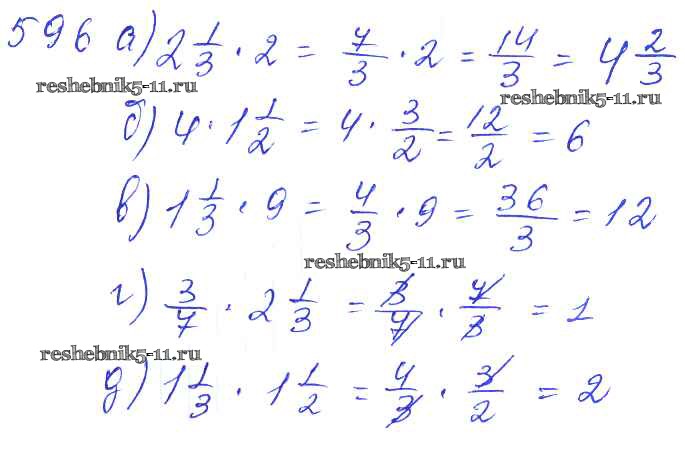 596 а) 2 1/3 · 2 = 7/3 · 2 = 14/3 = 4 2/3
reshebnik5-11.ru
reshebnik5-11.ru
б) 4 · 1 1/2 = 4 · 3/2 = 12/2 = 6
в) 1 1/3 · 9 = 4/3 · 9 = 36/3 = 12
reshebnik5-11.ru
г) 3/7 · 2 1/3 = 3/7 · 7/3 = 1
reshebnik5-11.ru
д) 1 1/3 · 1 1/2 = 4/3 · 3/2 = 2